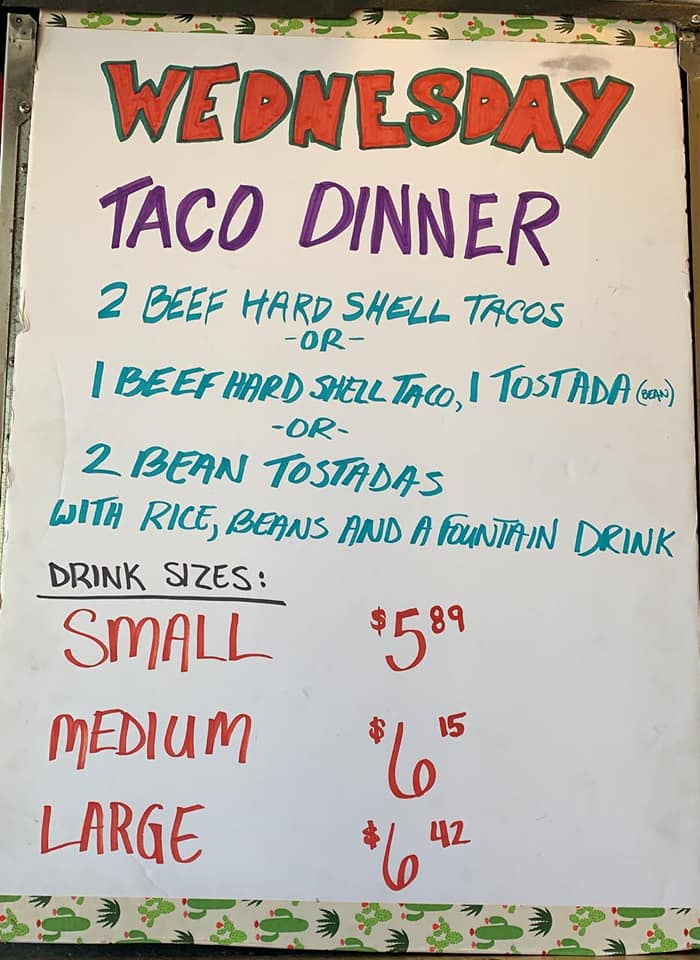 WEDNESDAY
TACO DINNER
2 BEEF HARD SHELL TACOS
-OR-
1 BEEF HARD SHELL TACO, 1 TOSTADA (BEAN)
-OR-
2 BEAN TOSTADAS
WITH RICE, BEANS AND A FOUNTAIN DRINK
DRINK SIZES:
SMALL $5 89
MEDIUM $6 15
LARGE $6 42